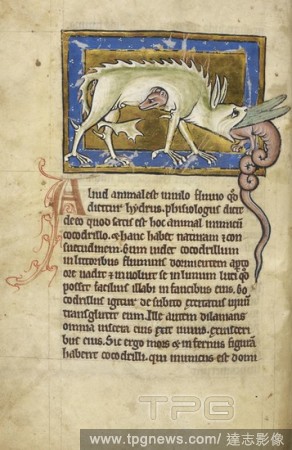 Aliud animal est in nilo fluvio q̄d
dicitur hydrus. phisiologus dicit
de eo quod satis est hoc animal inimicū
cocodrillo. & hanc habet naturam & con
suetudinem. Cum videt cocodrillum
in littoribus fluminis dormientem apto
ore vadit & involvit se in limum luti q̄o
possit facilius illabi in faucibus eius. Co
codrillus igitur de subito excitatus vivū
transglutit eum. Ille autem dilanians
omnia viscera eius exit vivus. existeri
bus eius. Sic ergo mors & infernus figurā
habent cocodrilli. qui inimicus est domi
TPG
www.tpgnews.com / 達志影像